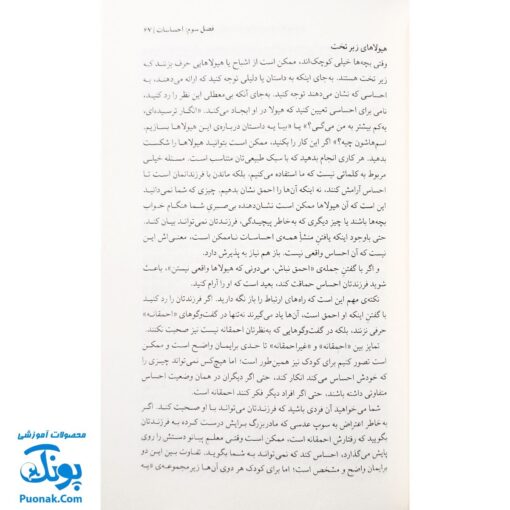 فصل سوم: احساسات | ۶۷
هیولاهای زیر تخت
وقتی بچه‌ها خیلی کوچک‌اند، ممکن است از اشباح یا هیولاهایی حرف بزنند که
زیر تخت هستند. به‌جای اینکه به داستان یا دلیلی توجه کنید که ارائه می‌دهند، به
احساسی که نشان می‌دهند توجه کنید. به‌جای آنکه بی‌معطلی این نظر را رد کنید،
نامی برای احساسی تعیین کنید که هیولا در او ایجاد می‌کند. «انگار ترسیده‌ای،
یه‌کم بیشتر به من می‌گی؟» یا «بیا یه داستان درباره‌ی این هیولاها بسازیم.
اسم‌هاشون چیه؟» اگر این کار را بکنید، ممکن است بتوانید هیولاها را شکست
بدهید. هر کاری انجام بدهید که با سبک طبیعی‌تان متناسب است. مسئله خیلی
مربوط به کلماتی نیست که ما استفاده می‌کنیم، بلکه ماندن با فرزندانمان است تا
احساس آرامش کنند، نه اینکه آن‌ها را احمق نشان بدهیم. چیزی که شما نمی‌دانید
این است که آن هیولاها ممکن است نشان‌دهنده بی‌صبری شما هنگام خواب
بچه‌ها باشند یا چیز دیگری که به‌خاطر پیچیدگی، فرزندتان نمی‌تواند بیان کند.
حتی باوجود اینکه یافتن منشأ همه‌ی احساسات ناممکن است، معنی‌اش این
نیست که آن احساس واقعی نیست. باز هم نیاز به پذیرش دارد.
و اگر با گفتن جمله‌ی «احمق نباش، می‌دونی که هیولاها واقعی نیستن»، باعث
شوید فرزندتان احساس حماقت کند، بعید است که او را آرام کنید.
نکته‌ی مهم این است که راه‌های ارتباط را باز نگه دارید. اگر فرزندتان را رد کنید یا
با گفتن اینکه او احمق است، آن‌ها یاد می‌گیرند نه‌تنها در گفت‌وگوهای «احمقانه»
حرفی نزنند، بلکه در گفت‌وگوهایی که به‌نظرتان احمقانه نیست نیز صحبت نکنند.
تمایز بین «احمقانه» و «غیراحمقانه» تا حدی برایمان واضح است و ممکن
است تصور کنیم برای کودک نیز همین‌طور است؛ اما هیچ‌کس نمی‌تواند چیزی را
که خودش احساس می‌کند انکار کند، حتی اگر دیگران در همان وضعیت احساس
متفاوتی داشته باشند، حتی اگر افراد دیگر فکر کنند احمقانه است.
شما می‌خواهید آن فردی باشید که فرزندتان می‌تواند با او صحبت کند. اگر
به خاطر اعتراض به سوپ عدسی که مادربزرگ برایش درست کرده به فرزندتان
بگویید که رفتارش احمقانه است، ممکن است وقتی معلم پیانو دستش را روی
پایش می‌گذارد، احساس کند که نمی‌تواند به شما بگوید. تفاوت بین این دو
برایمان واضح و مشخص است؛ اما برای کودک هر دوی آن‌ها زیر مجموعه‌ی «یه
محصولات آموزشی
پونک
Puonak.Com